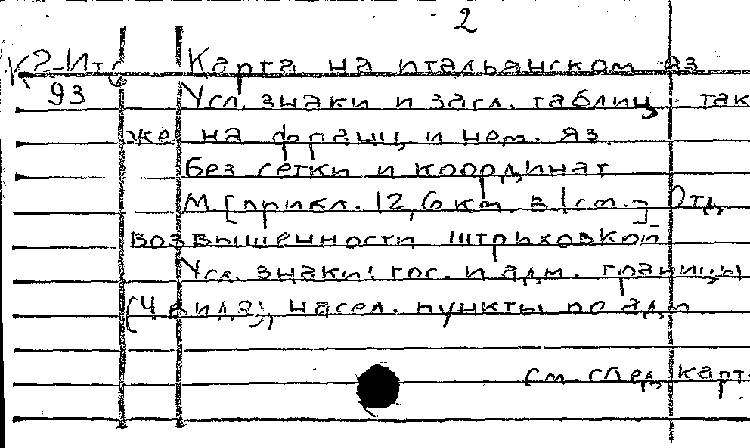 2
К2-Ит Карта на итальянском яз
93 Усл. знаки и загл. таблиц так
же на франц. и нем. яз.
без сетки и координат
М [прибл. 12,6 км в 1 см.] Отд.
возвышенности штриховкой
Усл. знаки: гос. и адм. границы
(4 вида), насел. пункты по адм.
см. след. карт